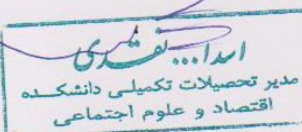 اسدا... نقدی
مدیر تحصیلات تکمیلی دانشکده
اقتصاد و علوم اجتماعی